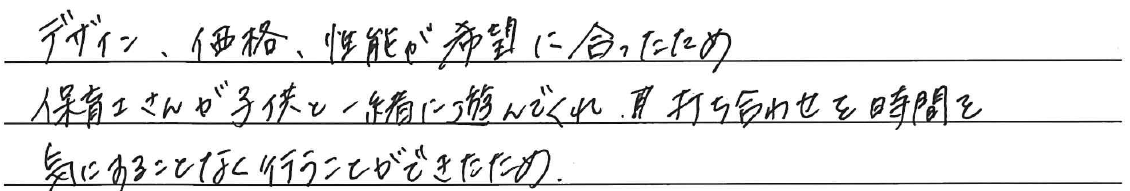 デザイン、価格、性能が希望に合ったため
保育士さんが子供と一緒に遊んでくれ、打ち合わせを時間を
気にすることなく行うことができたため.